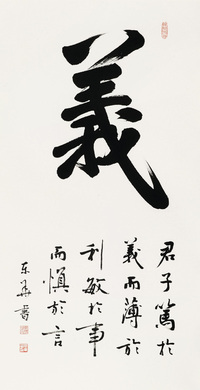 義
君子篤於
義而薄於
利敏於事
而慎於言
东昇書